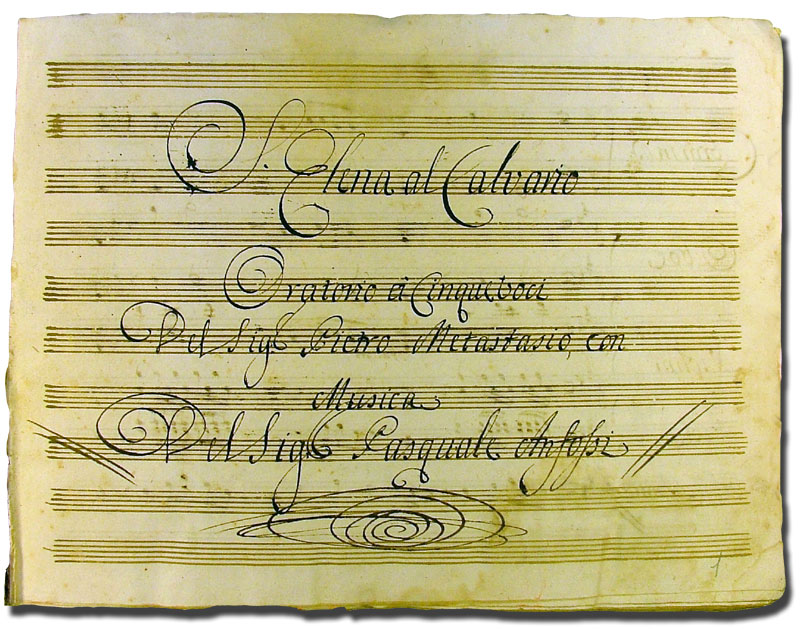 S. Elena al Calvario
Oratorio à Cinque Voci
Del Sig.r Pietro Metastasio, con
Musica
Del Sig.r Pasquale Anfossi
1